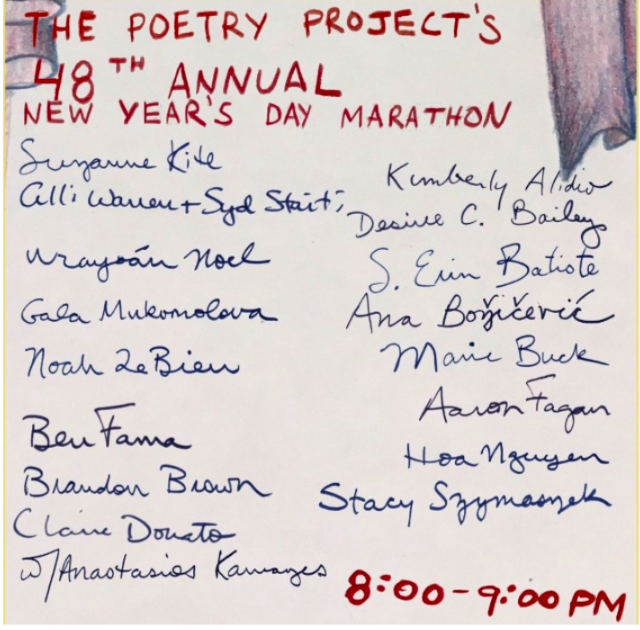 THE POETRY PROJECT'S
48TH ANNUAL
NEW YEAR'S DAY MARATHON
Suzanne Kite
Alli Warren + Syd Staiti
Urayoán Noel
Gala Mukomolova
Noah LeBien
Ben Fama
Brandon Brown
Claire Donato
w/Anastasios Karnazes
Kimberly Alidio
Desiree C. Bailey
S. Erin Batiste
Ana Božičević
Marie Buck
Aaron Fagan
Hoa Nguyen
Stacy Szymaszek
8:00-9:00 PM